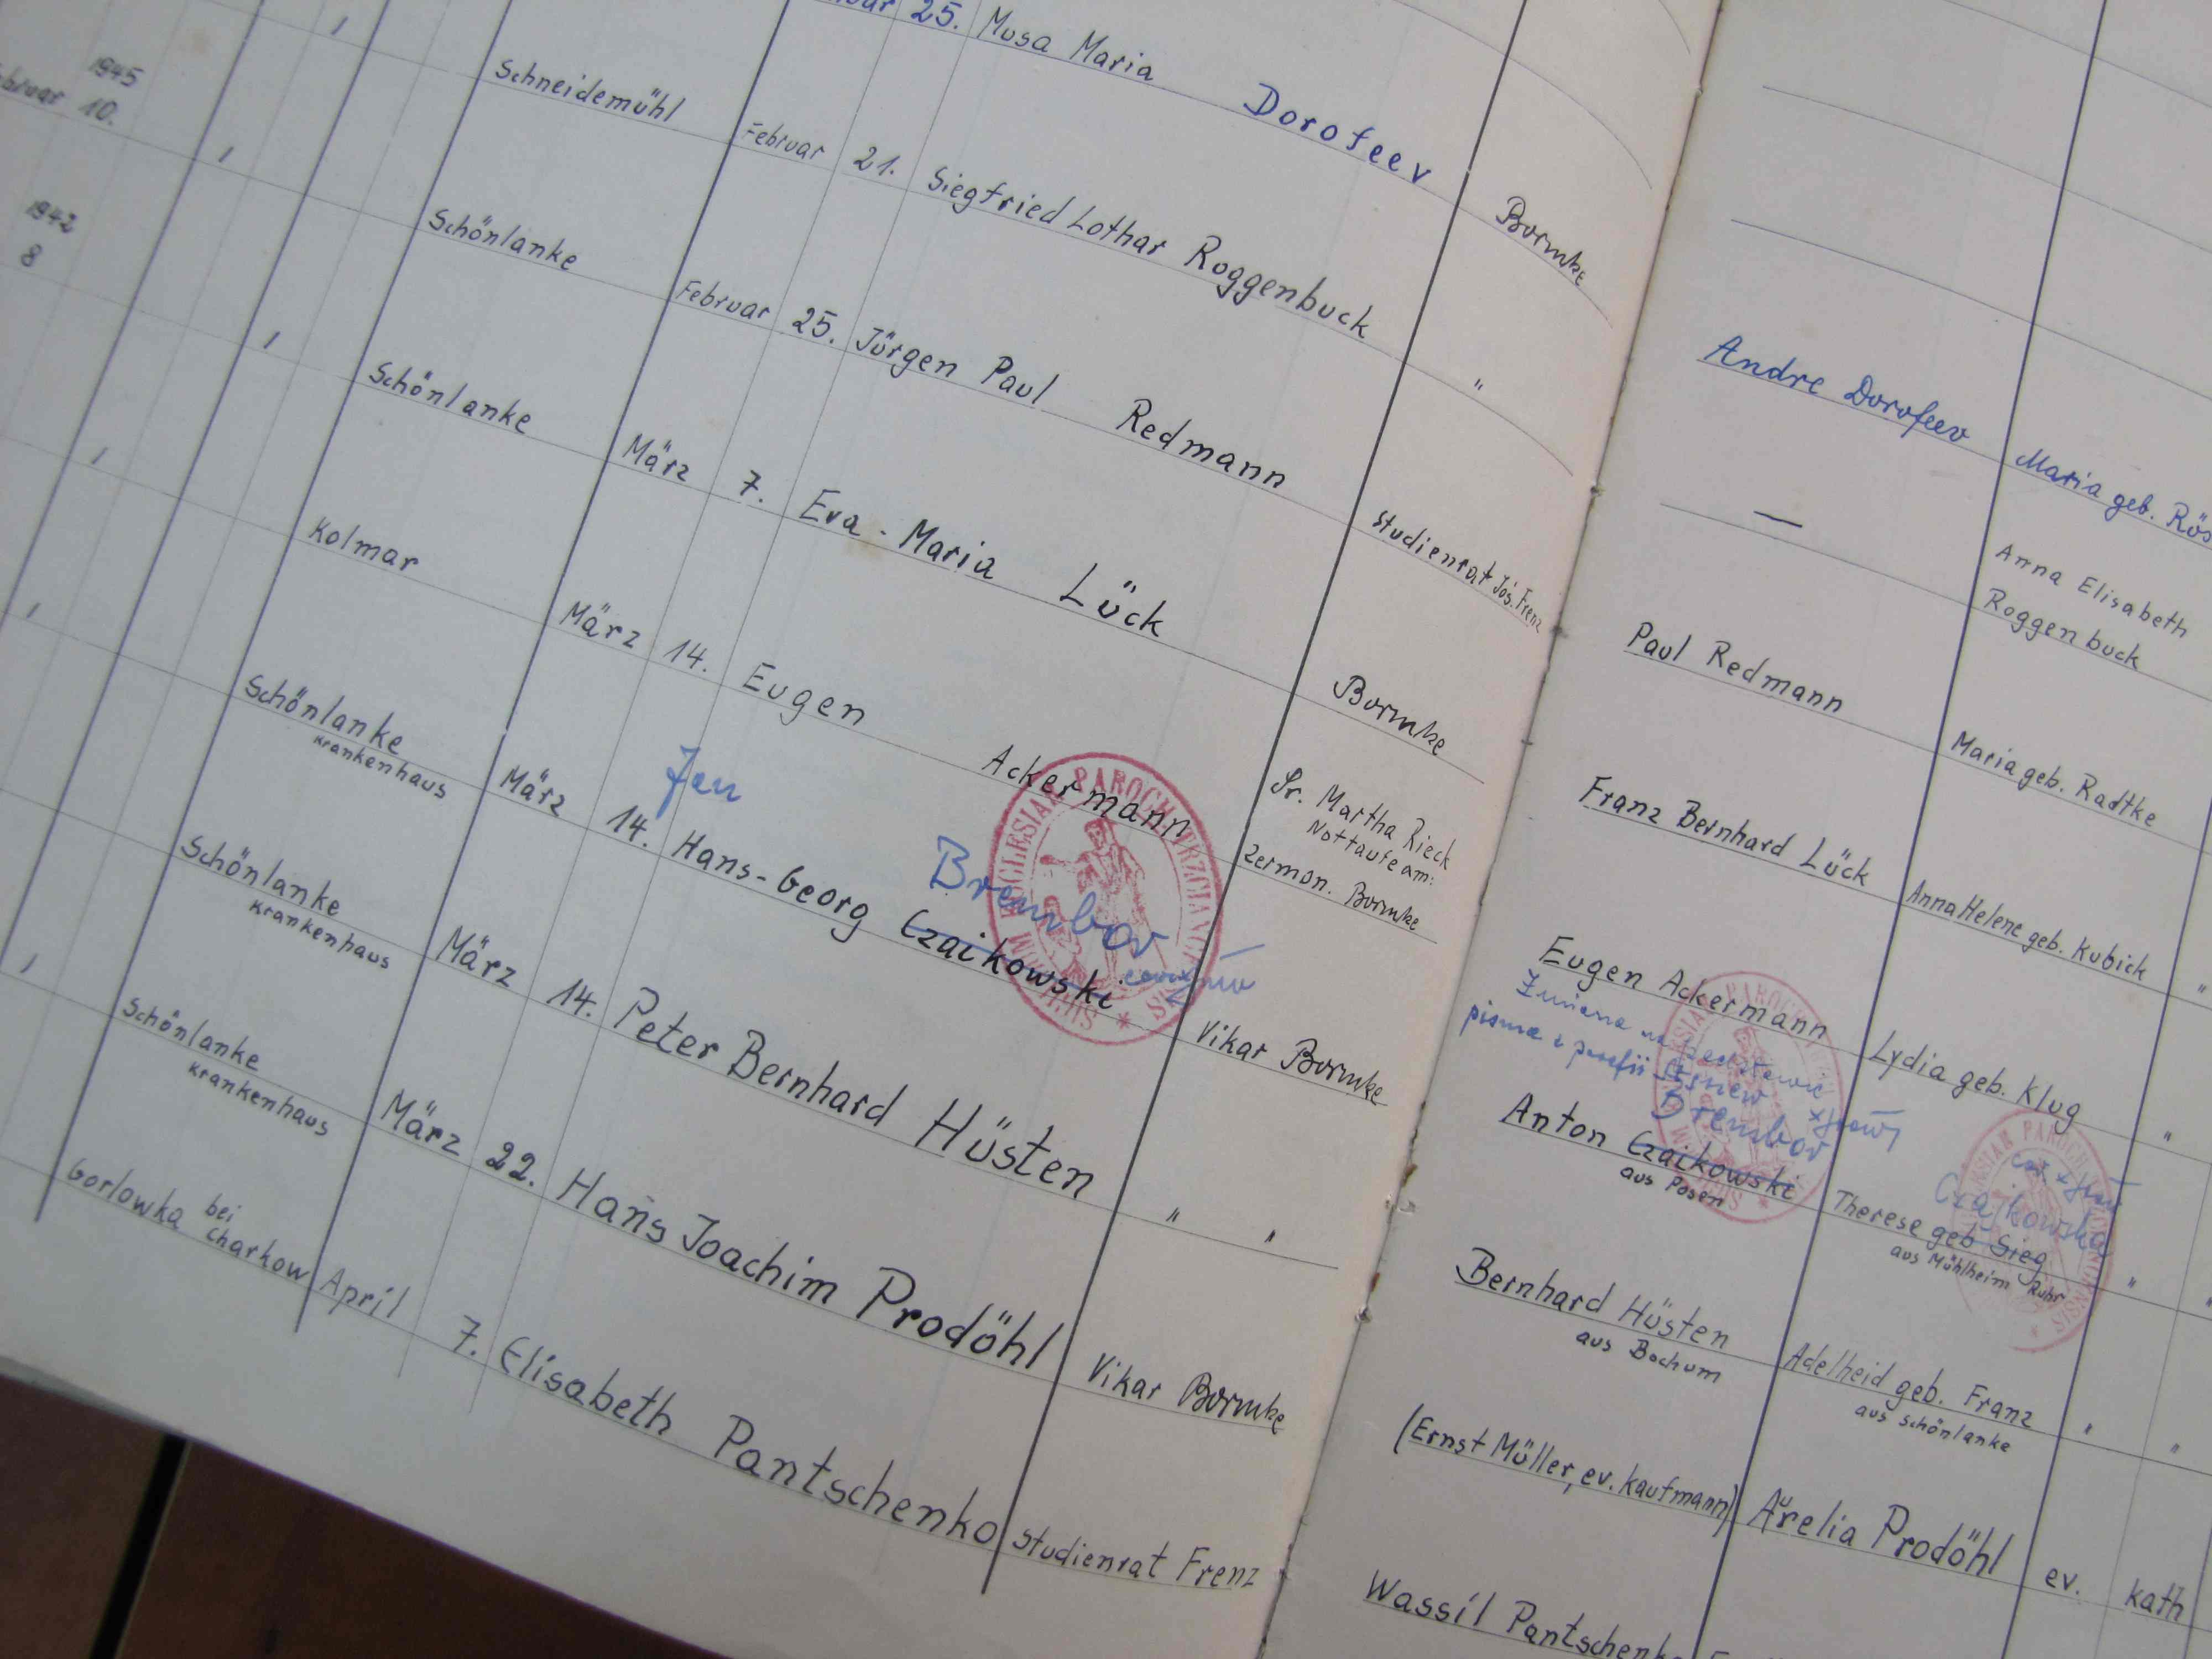 25. Musa Maria Dorofeev
Bormke
Andre Dorofeev
Maria geb. Rös
1945
10.
Schneidemühl
Februar 21. Siegfried Lothar Roggenbuck
"
—
Anna Elisabeth
Roggenbuck
1942
8
Schönlanke
Februar 25. Jürgen Paul Redmann
Studienrat Jos. Frenz
Paul Redmann
Maria geb. Radtke
Schönlanke
März 7. Eva-Maria Lück
Bormke
Franz Bernhard Lück
Anna Helene geb. Kubick
"
Kolmar
März 14. Eugen Ackermann
Sr. Martha Rieck
Nottaufe am:
Zermon. Bormke
Eugen Ackermann
Lydia geb. Klug
"
Schönlanke
Krankenhaus
Jan
Brembor
März 14. Hans-Georg Czaikowski
Vikar Bormke
Zmiana na
pisma z parafii
Brembor
Anton Czaikowski
aus Posen
Czajkowska
Therese geb Sieg
aus Mühlheim Ruhr
" "
Schönlanke
Krankenhaus
März 14. Peter Bernhard Hüsten
" "
Bernhard Hüsten
aus Bochum
Adelheid geb. Franz
aus Schönlanke
" "
Schönlanke
Krankenhaus
März 22. Hans Joachim Prodöhl
Vikar Bormke
(Ernst Müller, ev. Kaufmann)
Aurelia Prodöhl
ev. kath
Gorlowka bei
Charkow
April 7. Elisabeth Pantschenko
Studienrat Frenz
Wassil Pantschenk